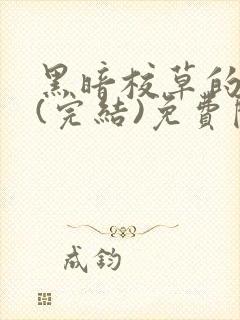 黑暗校草的
(完結)免費
成鈞